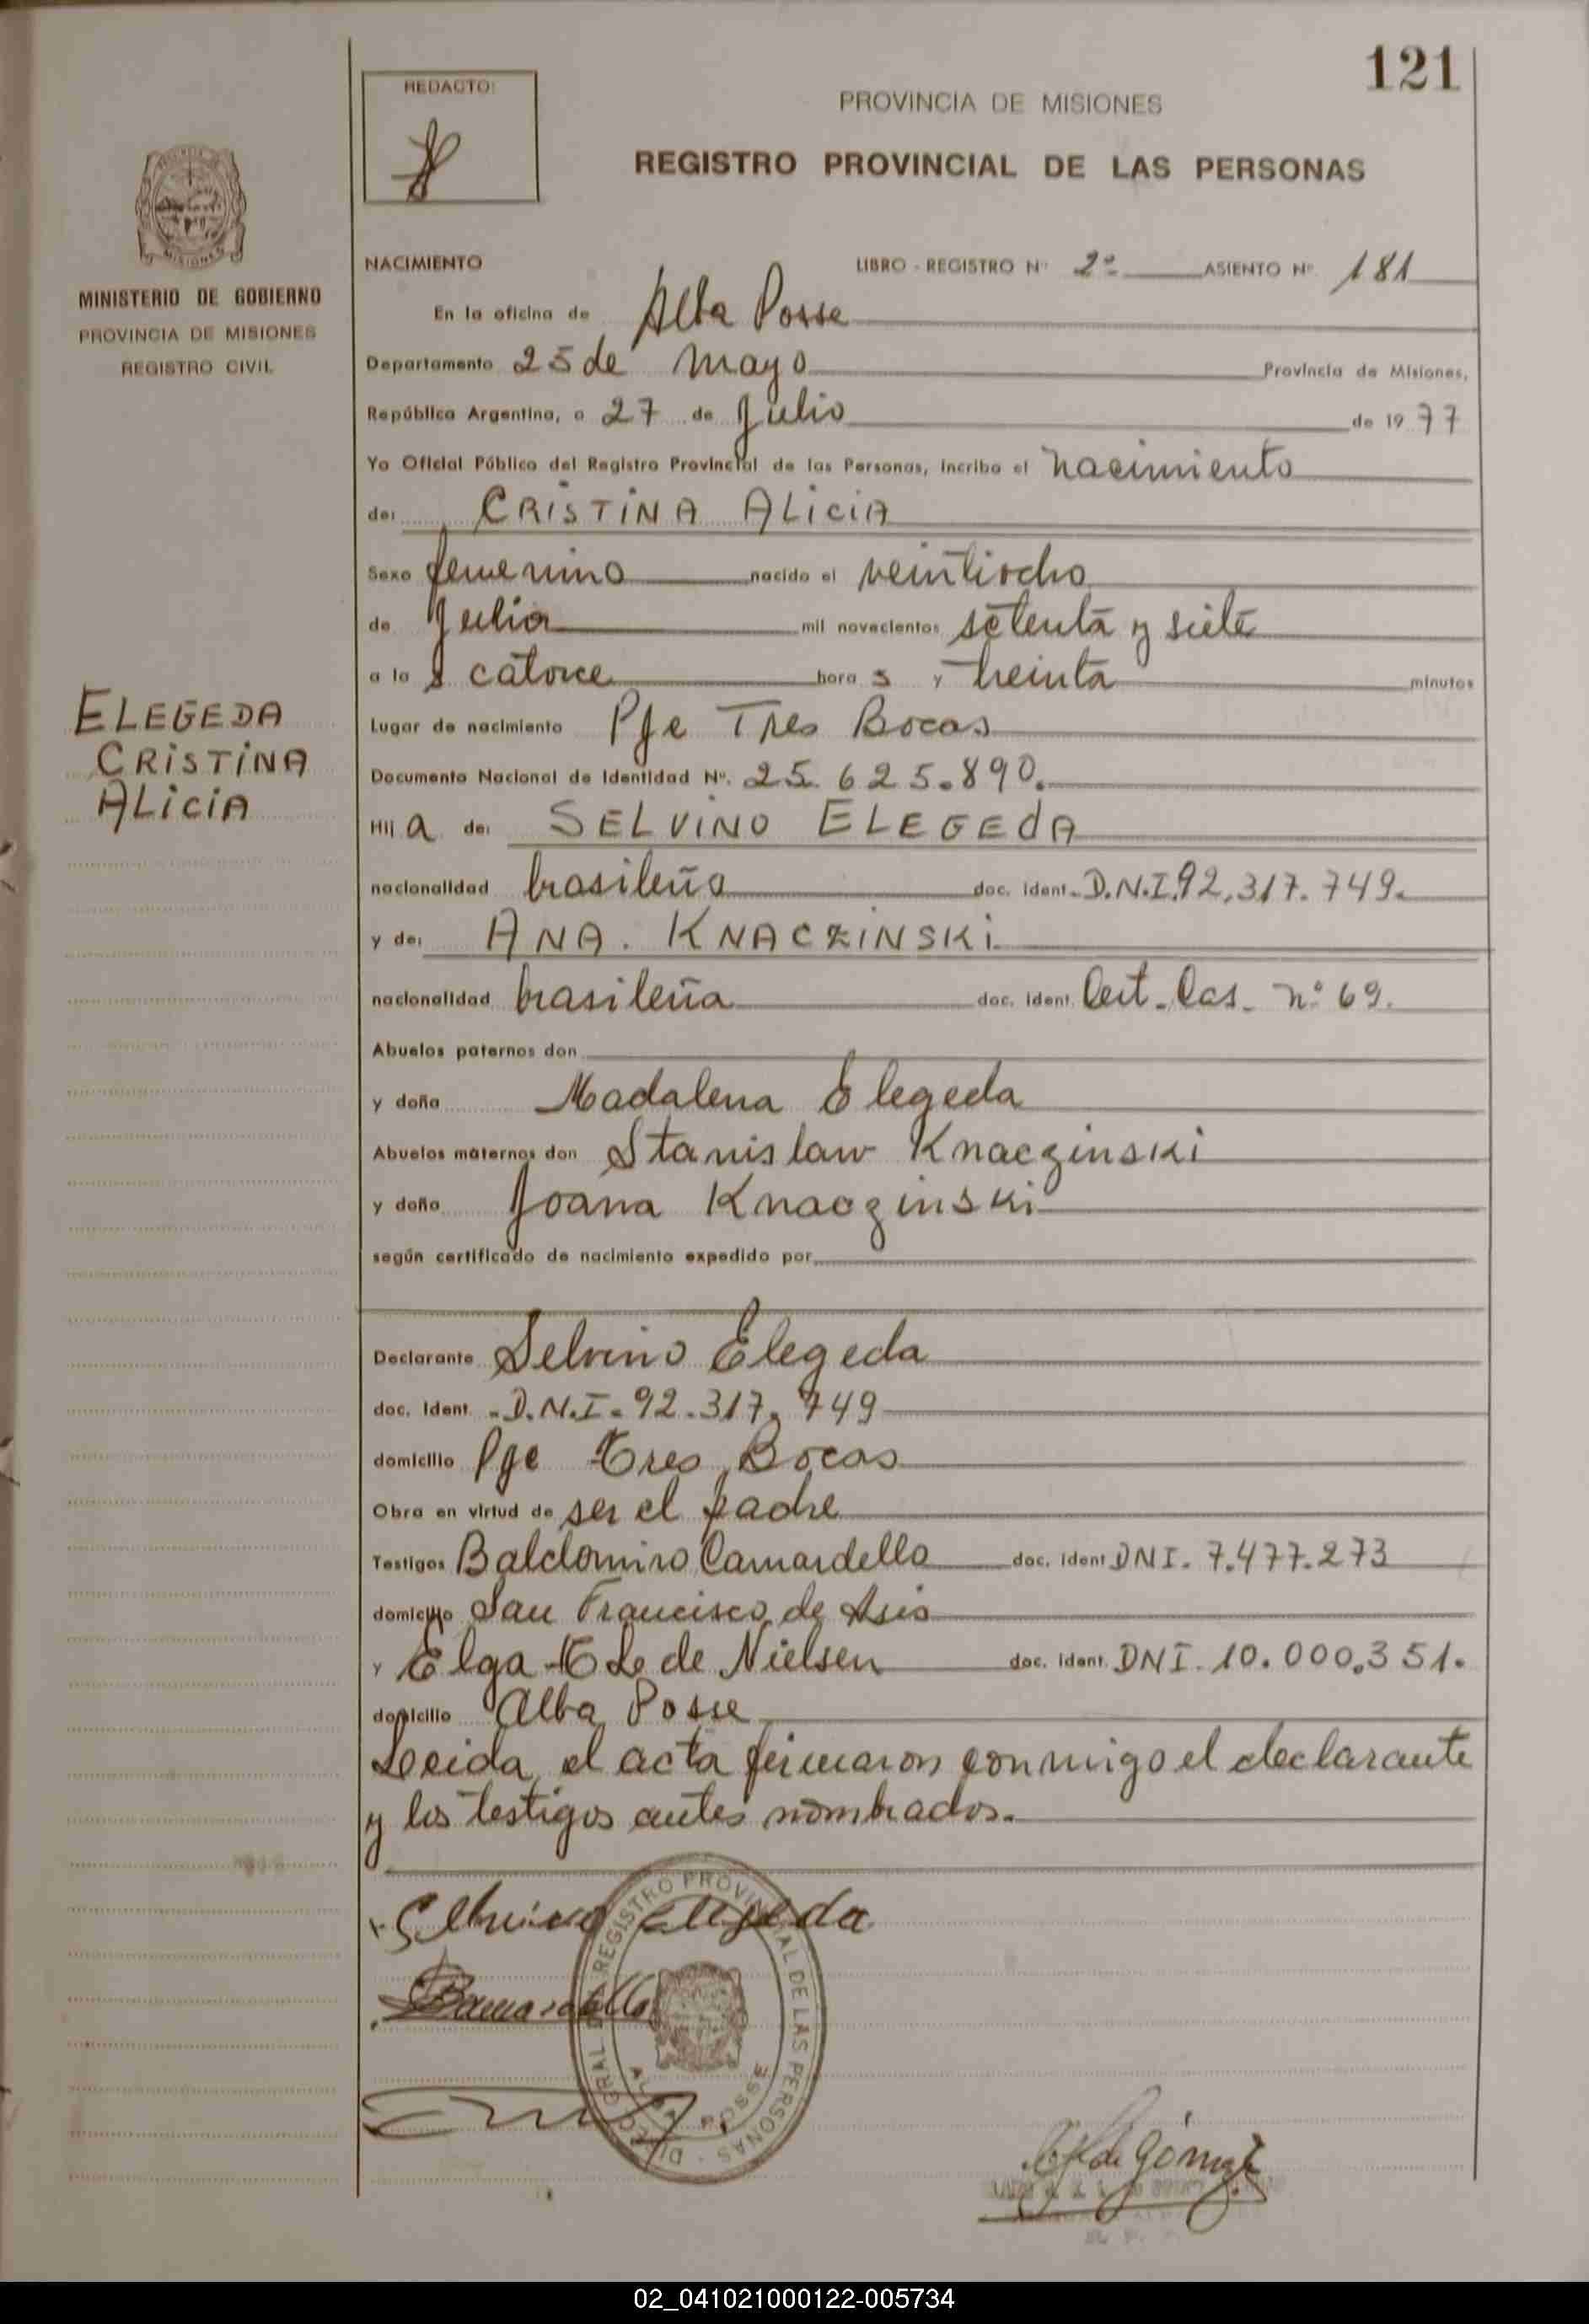 121
REDACTO:
PROVINCIA DE MISIONES
REGISTRO PROVINCIAL DE LAS PERSONAS
MISIONES
MINISTERIO DE GOBIERNO
PROVINCIA DE MISIONES
REGISTRO CIVIL
NACIMIENTO LIBRO - REGISTRO Nº 2º ASIENTO Nº 181
En la oficina de Alba Posse
Departamento 25 de mayo Provincia de Misiones,
República Argentina, a 27 de Julio de 1977
Yo Oficial Público del Registro Provincial de las Personas, incribo el nacimiento
de: CRISTINA ALICIA
Sexo femenino nacido el veintiocho
de Julio mil novecientos setenta y siete
a las catorce horas y treinta minutos
Lugar de nacimiento Pje Tres Bocas
ELEGEDA
CRISTINA
ALICIA
Documento Nacional de Identidad Nº. 25.625.890.
Hija de: SELVINO ELEGEDA
nacionalidad brasileño doc. ident. D.N.I.92.317.749.
y de: ANA. KNACZINSKI
nacionalidad brasileña doc. ident. Cert. Cas. nº 69.
Abuelos paternos don
y doña Madalena Elegeda
Abuelos maternos don Stanislaw Knaczinski
y doña Joana Knaczinski
según certificado de nacimiento expedido por
Declarante Selvino Elegeda
doc. ident. D.N.I. 92.317.749
domicilio Pje Tres Bocas
Obra en virtud de ser el padre
Testigos Baldomiro Camardello doc. ident DNI. 7.477.273
domicilio San Francisco de Asis
y Elga de Nielsen doc. ident. DNI. 10.000.351.
domicilio Alba Posse
Leida el acta firmaron conmigo el declarante
y los testigos antes nombrados.
Selvino Elegeda
Bamardello
DIREC. GRAL. DE REGISTRO PROVINCIAL DE LAS PERSONAS
ALBA POSSE
de Gómez
02_041021000122-005734